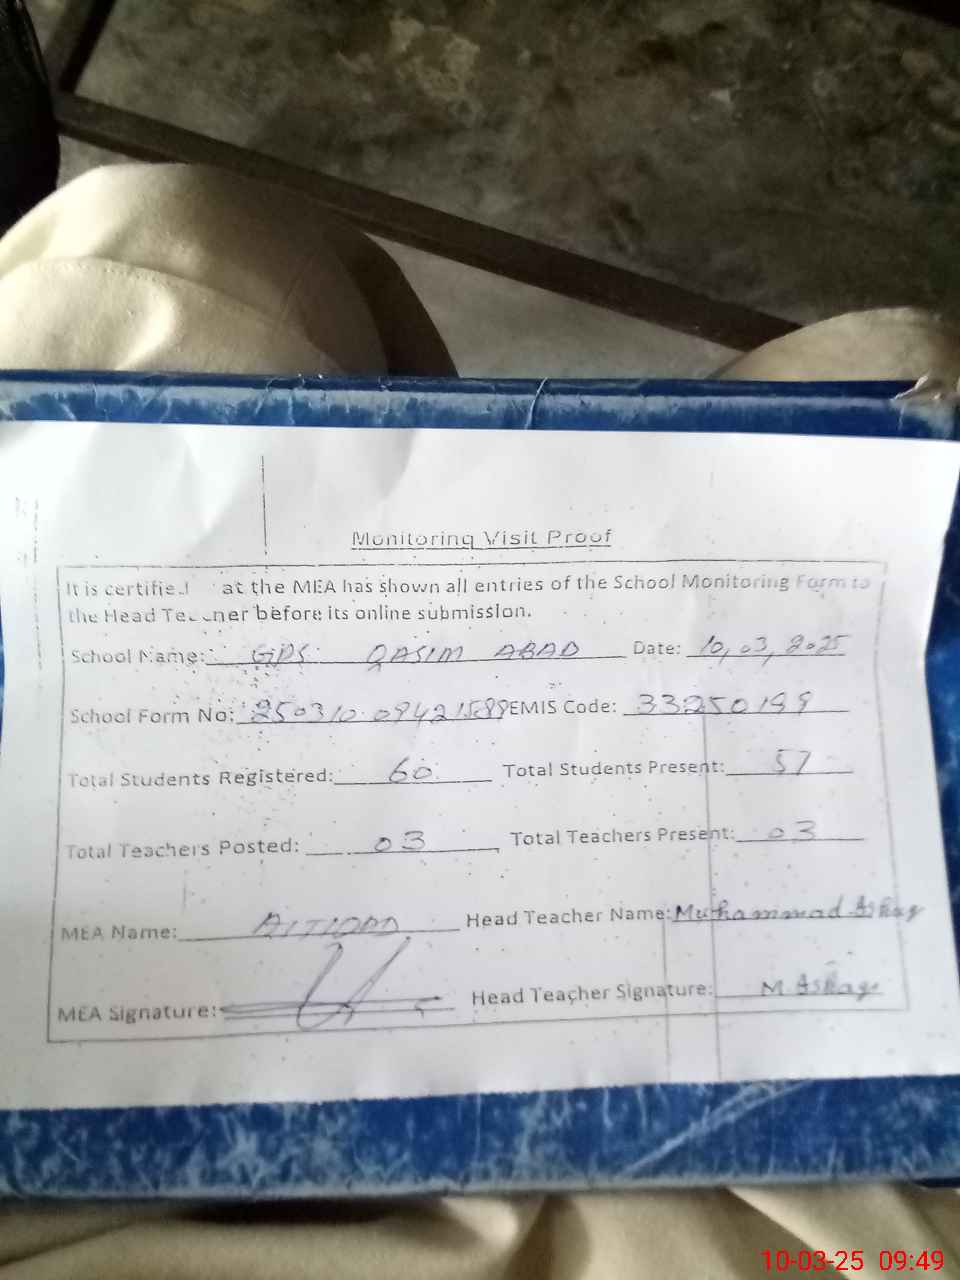 Monitoring Visit Proof
It is certified at the MEA has shown all entries of the School Monitoring Form to
the Head Teacher before its online submission.
School Name: GPS QASIM ABAD Date: 10,03,2025
School Form No: 250310.09421589 EMIS Code: 33250199
Total Students Registered: 60 Total Students Present: 57
Total Teachers Posted: 03 Total Teachers Present: 03
MEA Name: Head Teacher Name: Muhammad
MEA Signature: Head Teacher Signature: M.
10-03-25 09:49